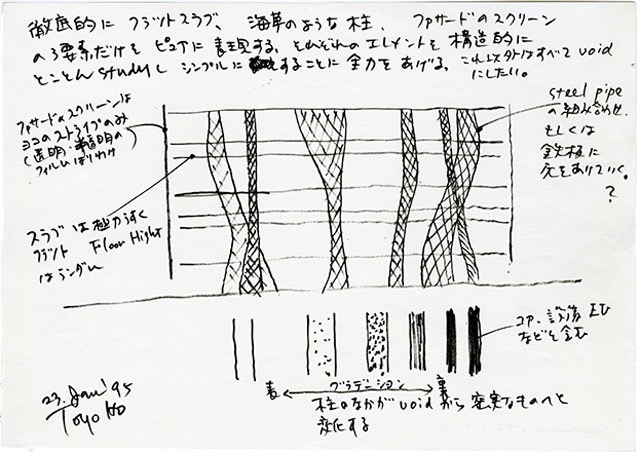 徹底的に フラットスラブ、海草のような柱、ファサードのスクリーン
の3要素だけを ピュアに 表現する、それぞれのエレメントを 構造的に
とことん studyし シンプルに することに 全力をあげる、これ以外はすべて void
にしたい。
ファサードのスクリーンは
ヨコのストライプのみ
(透明・半透明の
フィルムはりわけ
steel pipe
の組み合わせ
もしくは
鉄板に
穴をあけていく。
?
スラブは極力うすく
フラット Floor Hight
はランダム
コア、設備 EV
などを含む
表 グラデーション 裏
柱のなかが void から 密実なものへと
変化する
23. Jan' 95
Toyo Ito